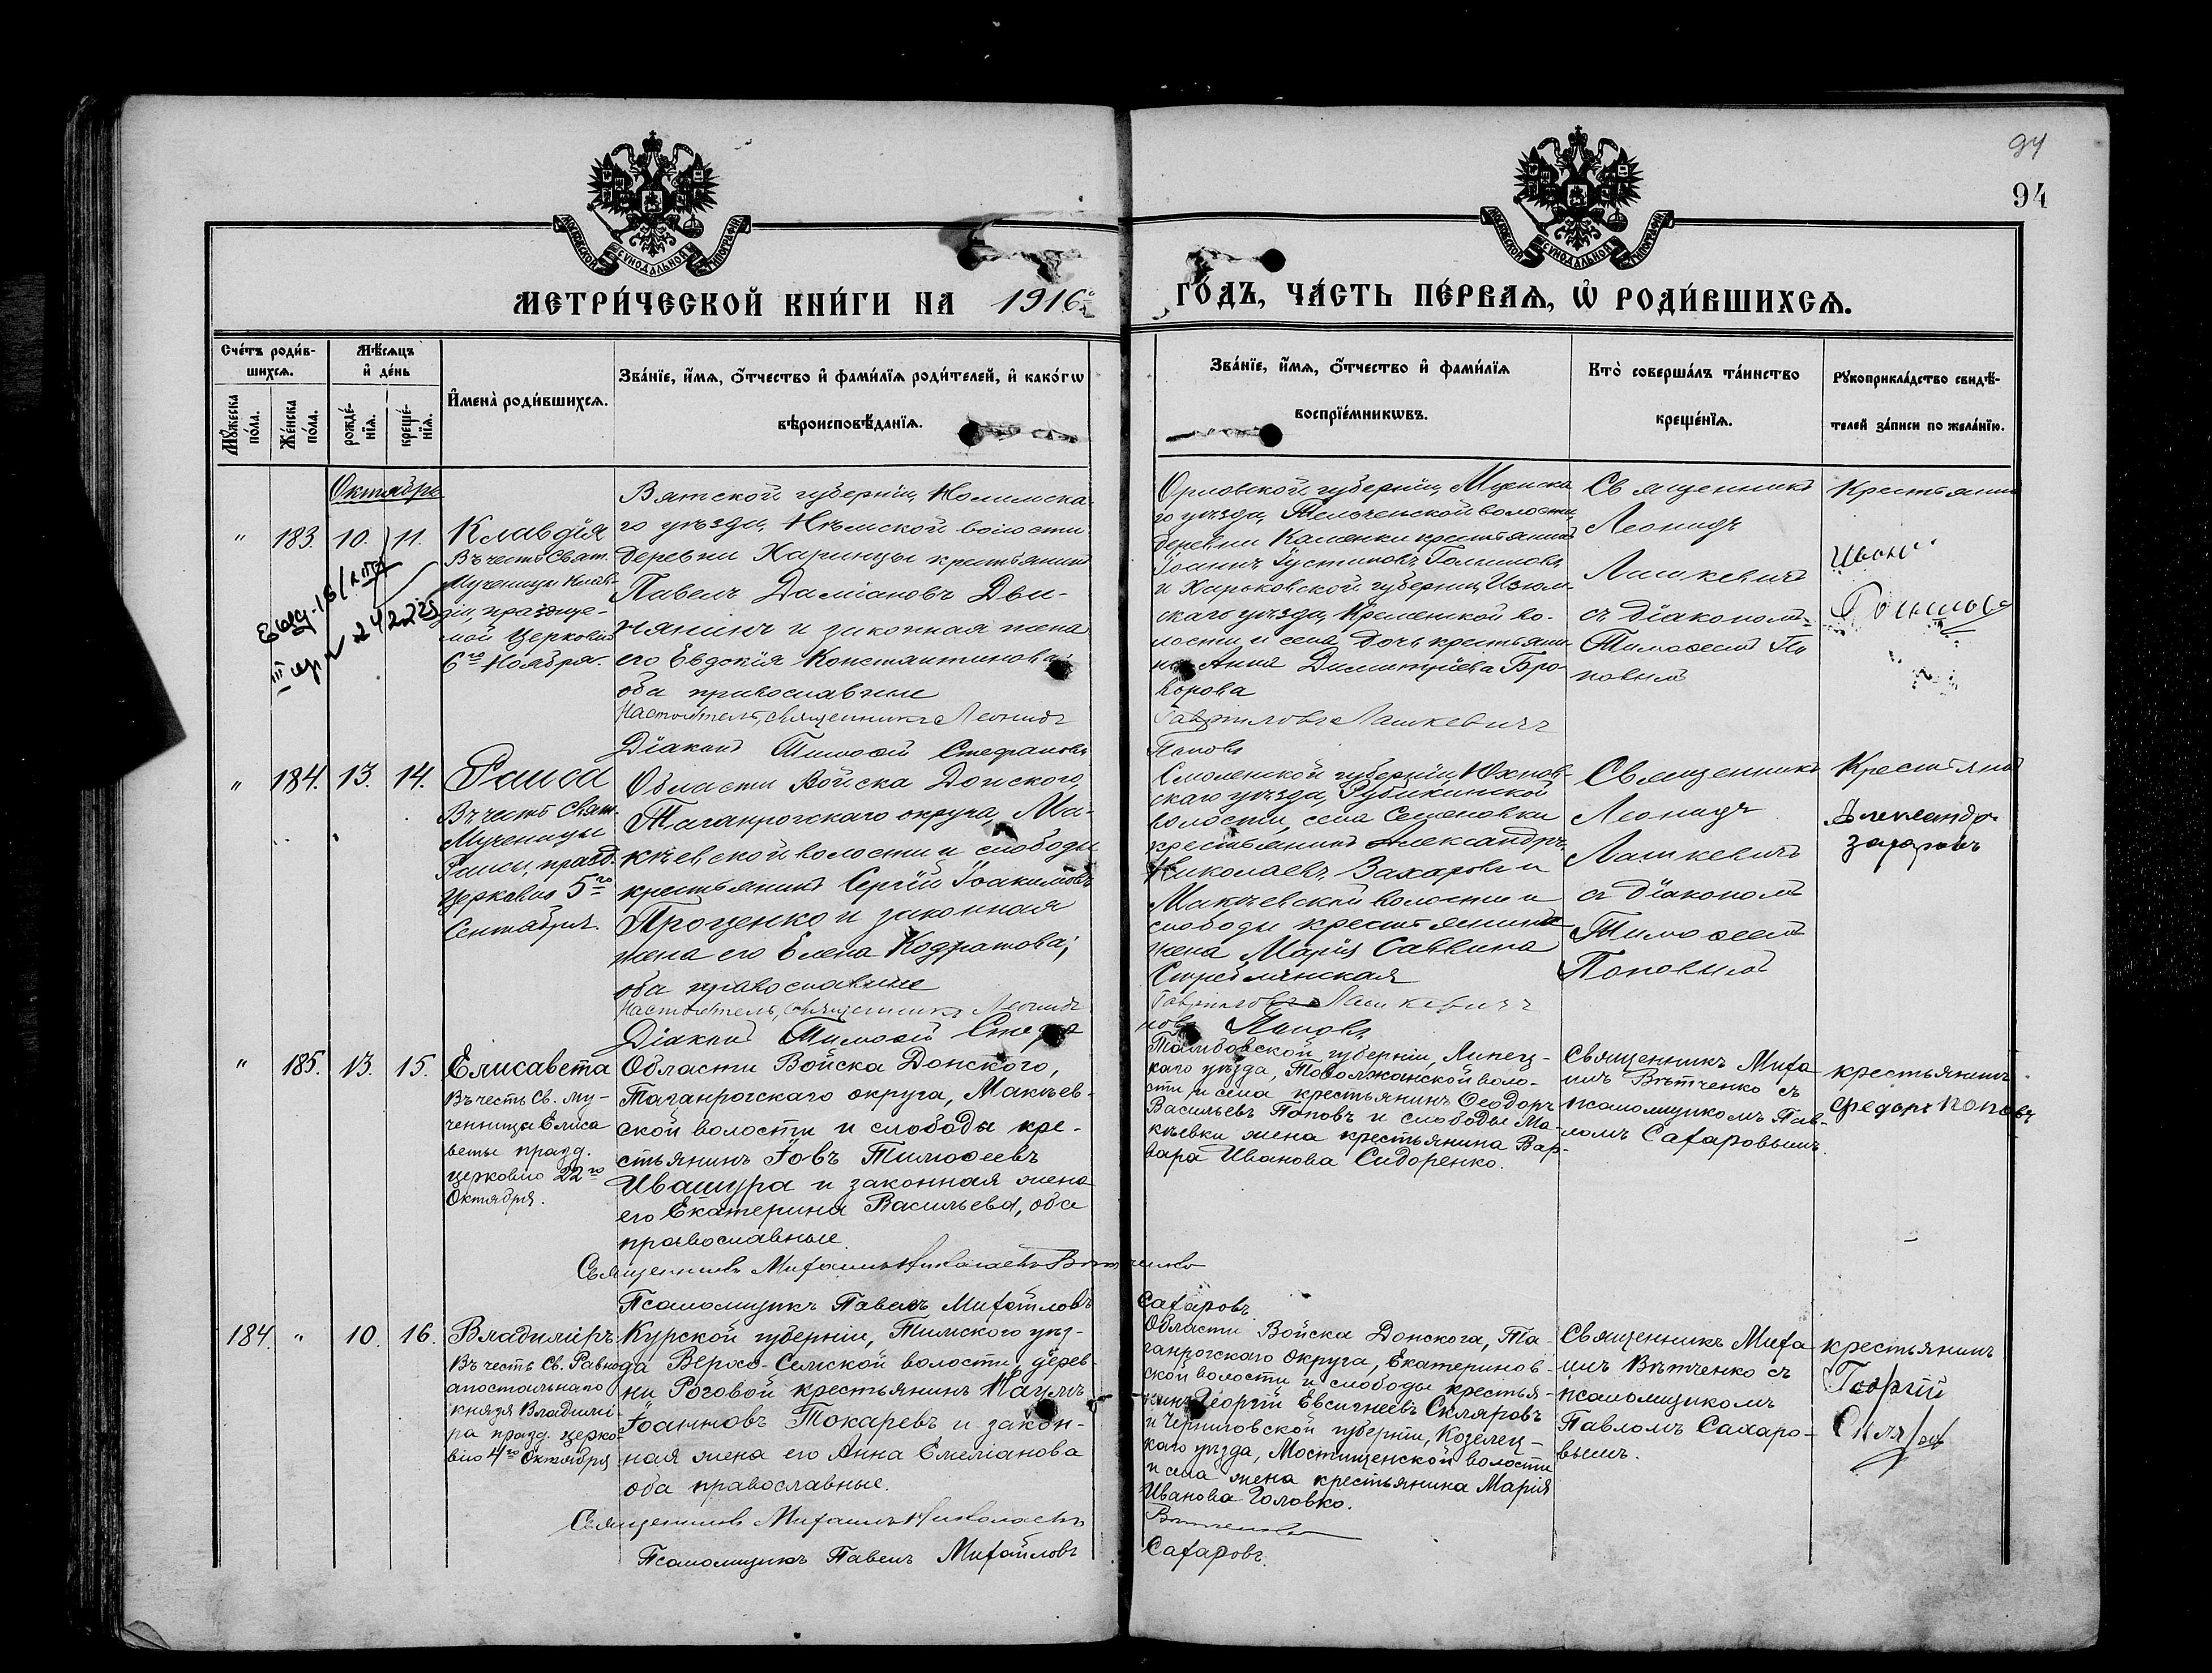 94
94
МОСКОВСКОЙ СУНОДАЛЬНОЙ ТИПОГРАФІИ
МОСКОВСКОЙ СУНОДАЛЬНОЙ ТИПОГРАФІИ
МЕТРИ́ЧЕСКОЙ КНИ́ГИ НА 1916й
ГО́ДЪ, ЧА́СТЬ ПЕ́РВАѦ, Ѡ҆ РОДИ́ВШИХСѦ.
Сче́тъ роди́в-
шихсѧ.
Мꙋ́жеска по́ла.
Же́нска по́ла.
Мѣ́сѧцъ
и҆ де́нь
рожде́-
нїѧ.
креще́-
нїѧ.
И҆мена̀ роди́вшихсѧ.
Зва́нїе, и҆́мѧ, ѻ҆́тчество и҆ фами́лїѧ роди́телей, и҆ како́гѡ
вѣроисповѣ́данїѧ.
Зва́нїе, и҆́мѧ, ѻ҆́тчество и҆ фами́лїѧ
воспрїе́мникѡвъ.
Кто̀ соверша́лъ та́инство
креще́нїѧ.
Рꙋкоприкла́дство свидѣ́-
телей за́писи по жела́нїю.
Октябрь
" 183. 10. 11.
Клавдія
Въ честь Свят.
Мученицы Клав-
діи, праздуе-
мой Церковію
6го Ноября.
Вятской губерніи, Нолинска-
го уѣзда, Нѣмской волости
деревни Харинцы крестьянинъ
Павелъ Даміановъ Дви-
нянинъ и законная жена
его Евдокія Константинова;
оба православные
Настоятель, священникъ Леонидъ
Діаконъ Тимофей Стефановъ
Орловской губерніи, Мценска-
го уѣзда, Тельченской волости
деревни Каменки крестьянинъ
Іоаннъ Іустиновъ
и Харьковской губерніи, Изюм-
скаго уѣзда, Кременской во-
лости и села дочь крестьяни-
на Анна Димитріева Бро-
ворова
Гавриловъ Лашкевичъ
Поповъ
Священникъ
Леонидъ
Лашкевичъ
съ діакономъ
Тимофеемъ По-
повымъ
Крестьянинъ
Иванъ
" 184. 13. 14.
Раиса
Въ честь Свят.
Мученицы
Раисы, празд.
Церковію 5го
Сентября.
Области Войска Донского,
Таганрогскаго округа, Ма-
кѣевской волости и слободы
крестьянинъ Сергій Іоакимовъ
Проценко и законная
жена его Елена Кодратова;
оба православные
Настоятель, священникъ Леонидъ
Діаконъ Тимофей Стефа
Смоленской губерніи, Юхнов-
скаго уѣзда, Рубихинской
волости, села Семеновки
крестьянинъ Александръ
Николаевъ Захаровъ и
Макѣевской волости и
слободы крестьянина
жена Марія Саввина
Стреблянская
Гавриловъ Лашкевичъ
новъ Поповъ
Священникъ
Леонидъ
Лашкевичъ
съ діакономъ
Тимофеемъ
Поповымъ
Крестьянинъ
Александръ
Захаровъ
" 185. 13. 15.
Елисавета
Въ честь Св. му-
ченицы Елиса
веты празд.
церковію 22го
Октября.
Области Войска Донского,
Таганрогскаго округа, Макѣев-
ской волости и слободы кре-
стьянинъ Іовъ Тимофеевъ
Ивашура и законная жена
его Екатерина Васильева, оба
православные.
Священникъ Михаилъ Николаевъ Вѣтченко
Псаломщикъ Павелъ Михайловъ
Тамбовской губерніи, Липец-
каго уѣзда, Товолжанской воло-
сти и села крестьянинъ Ѳеодоръ
Васильевъ Поповъ и слободы Ма-
кѣевки жена крестьянина Вар-
вара Иванова Сидоренко.
Сахаровъ.
Священникъ Миха
илъ Вѣтченко съ
псаломщикомъ Пав-
ломъ Сахаровымъ.
крестьянинъ
Федоръ Поповъ
184. " 10. 16.
Владиміръ
Въ честь Св. Равно
апостольнаго
князя Владимі-
ра празд. церко-
вію 4го Октября
Курской губерніи, Тимского уѣз-
да Верхо-Семской волости, дерев-
ни Роговой крестьянинъ Наумъ
Іоанновъ Токаревъ и закон-
ная жена его Анна Емеліанова
оба православные.
Священникъ Михаилъ Николаевъ
Псаломщикъ Павелъ Михайловъ
Области Войска Донскога, Та-
ганрогскаго округа, Екатеринов-
ской волости и слободы крестья-
нинъ Георгій Евсигнеевъ Скляровъ
и Черниговской губерніи, Козелец-
каго уѣзда, Мостищенской волости
и села жена крестьянина Марія
Иванова Головко.
Вѣтченко
Сахаровъ.
Священникъ Миха
илъ Вѣтченко съ
псаломщикомъ
Павломъ Сахаро-
вымъ.
крестьянинъ
Георгій
Скляров